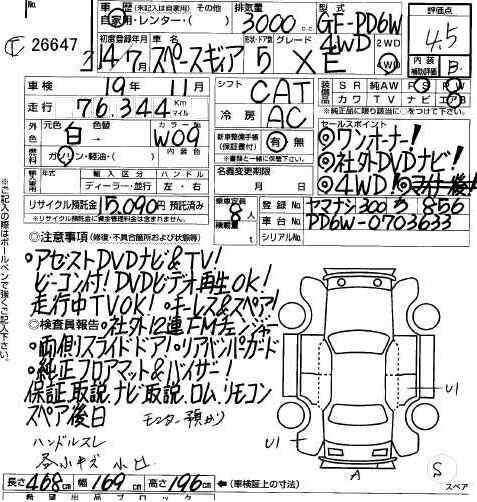 車歴 (未記入は自家用) その他
自家用・レンター・( )
排気量 3000 c.c
型式 GF-PD6W
評価点 4.5
26647
初度登録年月 14/7月
車名 スペースギア
形状・ドア数 5
グレード XE
4WD
2WD
4WD
内装補助評価 B
車検 19年 11月
シフト CAT
装備 SR 純AW PS PW
カワ TV ナビ エアB
※純正品に限り該当に○をつけて下さい。
走行 76,344 Km マイル
冷房 AC
外色 元色 白→ 色替 カラーNo W09
新車整備手帳(保証書付) 有・無
※書類と一緒に保管
セールスポイント
◎ワンオーナー!
◎社外DVDナビ!
◎4WD!
燃料 ガソリン・軽油・( ) 内装色
輸入車用 輸入区分 ハンドル
ディーラー・並行 左・右
名義変更期限 月 日
リサイクル預託金 15,090円 預託済み
※リサイクル預託金に資金管理料金は含まれません。
乗車定員 8人
積載量 t
登録No. ヤマナシ300 ろ 856
車台No. PD6W-0703633
シリアルNo.
※ご記入の際はボールペンで強くご記入下さい。
◎注意事項 (修復・不具合箇所及び状態等)
•アゼストDVDナビ&TV!
ビーコン付!DVDビデオ再生OK!
走行中TVOK! •キーレス&スペア!
◎検査員報告 •社外12連FMチェンジャー
•両側スライドドア!•リアバンパーガード
•純正フロアマット&バイザー!
保証、取説、ナビ取説、ロム、リモコン
スペア後日 モニター預かり
ハンドルスレ
各小キズ 小凹
U1
U1
A
S
スペア
長さ 468cm 幅 169cm 高さ 196cm ←(車検証上の寸法)